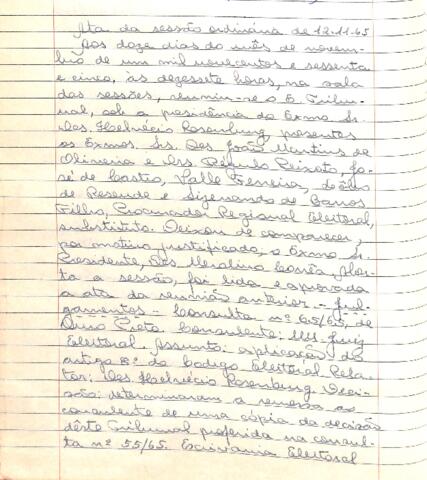 Ata da sessão ordinária de 12-11-65
Aos doze dias do mês de novem-
bro de um mil novecentos e sessenta
e cinco, às dezessete horas, na sala
das sessões, reuniu-se o E. Tribu-
nal, sob a presidência do Exmo Sr.
Des. Helvécio Rosenburg, presentes
os Exmos. Srs. Des. João Martins de
Oliveira e Drs. Régulo Peixoto, Jo-
sé de Castro, Valle Ferreira,
de Resende e Sizenando de Barros
Filho, Procurador Regional Eleitoral,
substituto. Deixou de comparecer,
por motivo justificado, o Exmo Sr.
Presidente, Des. Merolino Corrêa. Aber-
ta a sessão, foi lida e aprovada
a ata da reunião anterior - Jul-
gamentos - Consulta nº 65/65, de
Ouro Preto. Consulente: MM. Juiz
Eleitoral. Assunto: aplicação do
artigo 8º do Codigo Eleitoral Rela-
tor: Des. Helvécio Rosenburg. Deci-
são: determinaram a remessa ao
consulente de uma cópia da decisão
dêste Tribunal proferida na consul-
ta nº 55/65. Escrivania Eleitoral